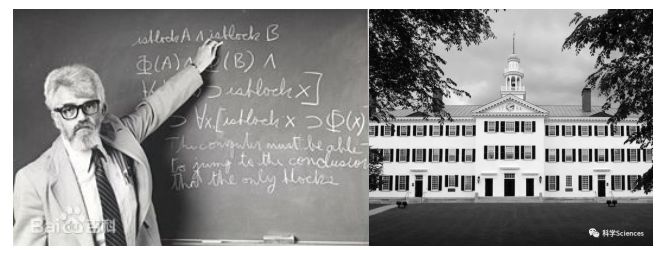 isblock A ∧ isblock B
Φ(A) ∧ (B) ∧
⊃ isblock x]
⊃ ∀x[isblock x ⊃ Φ(x)
The computer must be able
to jump to the conclusion
that the only blocks
Bai 百科
科学Sciences